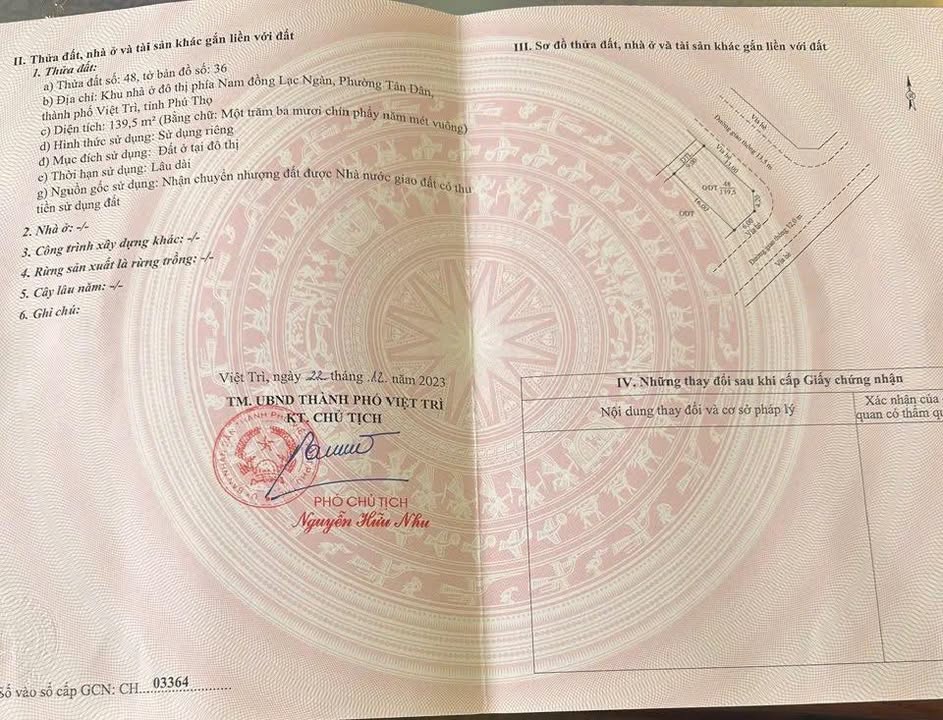 II. Thửa đất, nhà ở và tài sản khác gắn liền với đất
1. Thửa đất:
a) Thửa đất số: 48, tờ bản đồ số: 36
b) Địa chỉ: Khu nhà ở đô thị phía Nam đồng Lạc Ngàn, Phường Tân Dân,
thành phố Việt Trì, tỉnh Phú Thọ
c) Diện tích: 139,5 m² (Bằng chữ: Một trăm ba mươi chín phẩy năm mét vuông)
d) Hình thức sử dụng: Sử dụng riêng
đ) Mục đích sử dụng: Đất ở tại đô thị
e) Thời hạn sử dụng: Lâu dài
g) Nguồn gốc sử dụng: Nhận chuyển nhượng đất được Nhà nước giao đất có thu
tiền sử dụng đất
2. Nhà ở: -/-
3. Công trình xây dựng khác: -/-
4. Rừng sản xuất là rừng trồng: -/-
5. Cây lâu năm: -/-
6. Ghi chú:
Việt Trì, ngày 22 tháng 12 năm 2023
TM. UBND THÀNH PHỐ VIỆT TRÌ
KT. CHỦ TỊCH
PHÓ CHỦ TỊCH
Nguyễn Hữu Nhu
Số vào sổ cấp GCN: CH 03364
III. Sơ đồ thửa đất, nhà ở và tài sản khác gắn liền với đất
Vỉa hè
Đường giao thông 13,5 m
Vỉa hè
13.00
9.00
ODT 48
139,5
16.00
6.00
ODT
Vỉa hè
Đường giao thông 12,0 m
Vỉa hè
IV. Những thay đổi sau khi cấp Giấy chứng nhận
Nội dung thay đổi và cơ sở pháp lý
Xác nhận của
quan có thẩm